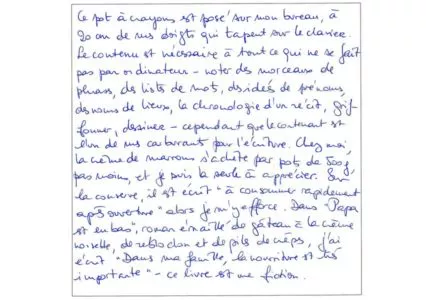 Ce pot à crayons est posé sur mon bureau, à
20 cm de mes doigts qui tapent sur le clavier.
Le contenu est nécessaire à tout ce qui ne se fait
pas par ordinateur - noter des morceaux de
phrases, des listes de mots, des idées de prénoms,
des noms de lieux, la chronologie d'un récit, grif-
fonner, dessiner - cependant que le contenant est
l'un de mes carburants pour l'écriture. Chez moi,
la crème de marrons s'achète par pots de 500g,
pas moins, et je suis la seule à apprécier. Sur
la conserve, il est écrit "à consommer rapidement
après ouverture" alors je m'y efforce. Dans "Papa
est en bas", roman émaillé de gâteau à la crème
noisette, de reblochon et de piles de crêpes, j'ai
écrit "Dans ma famille, la nourriture est très
importante" - ce livre est une fiction.